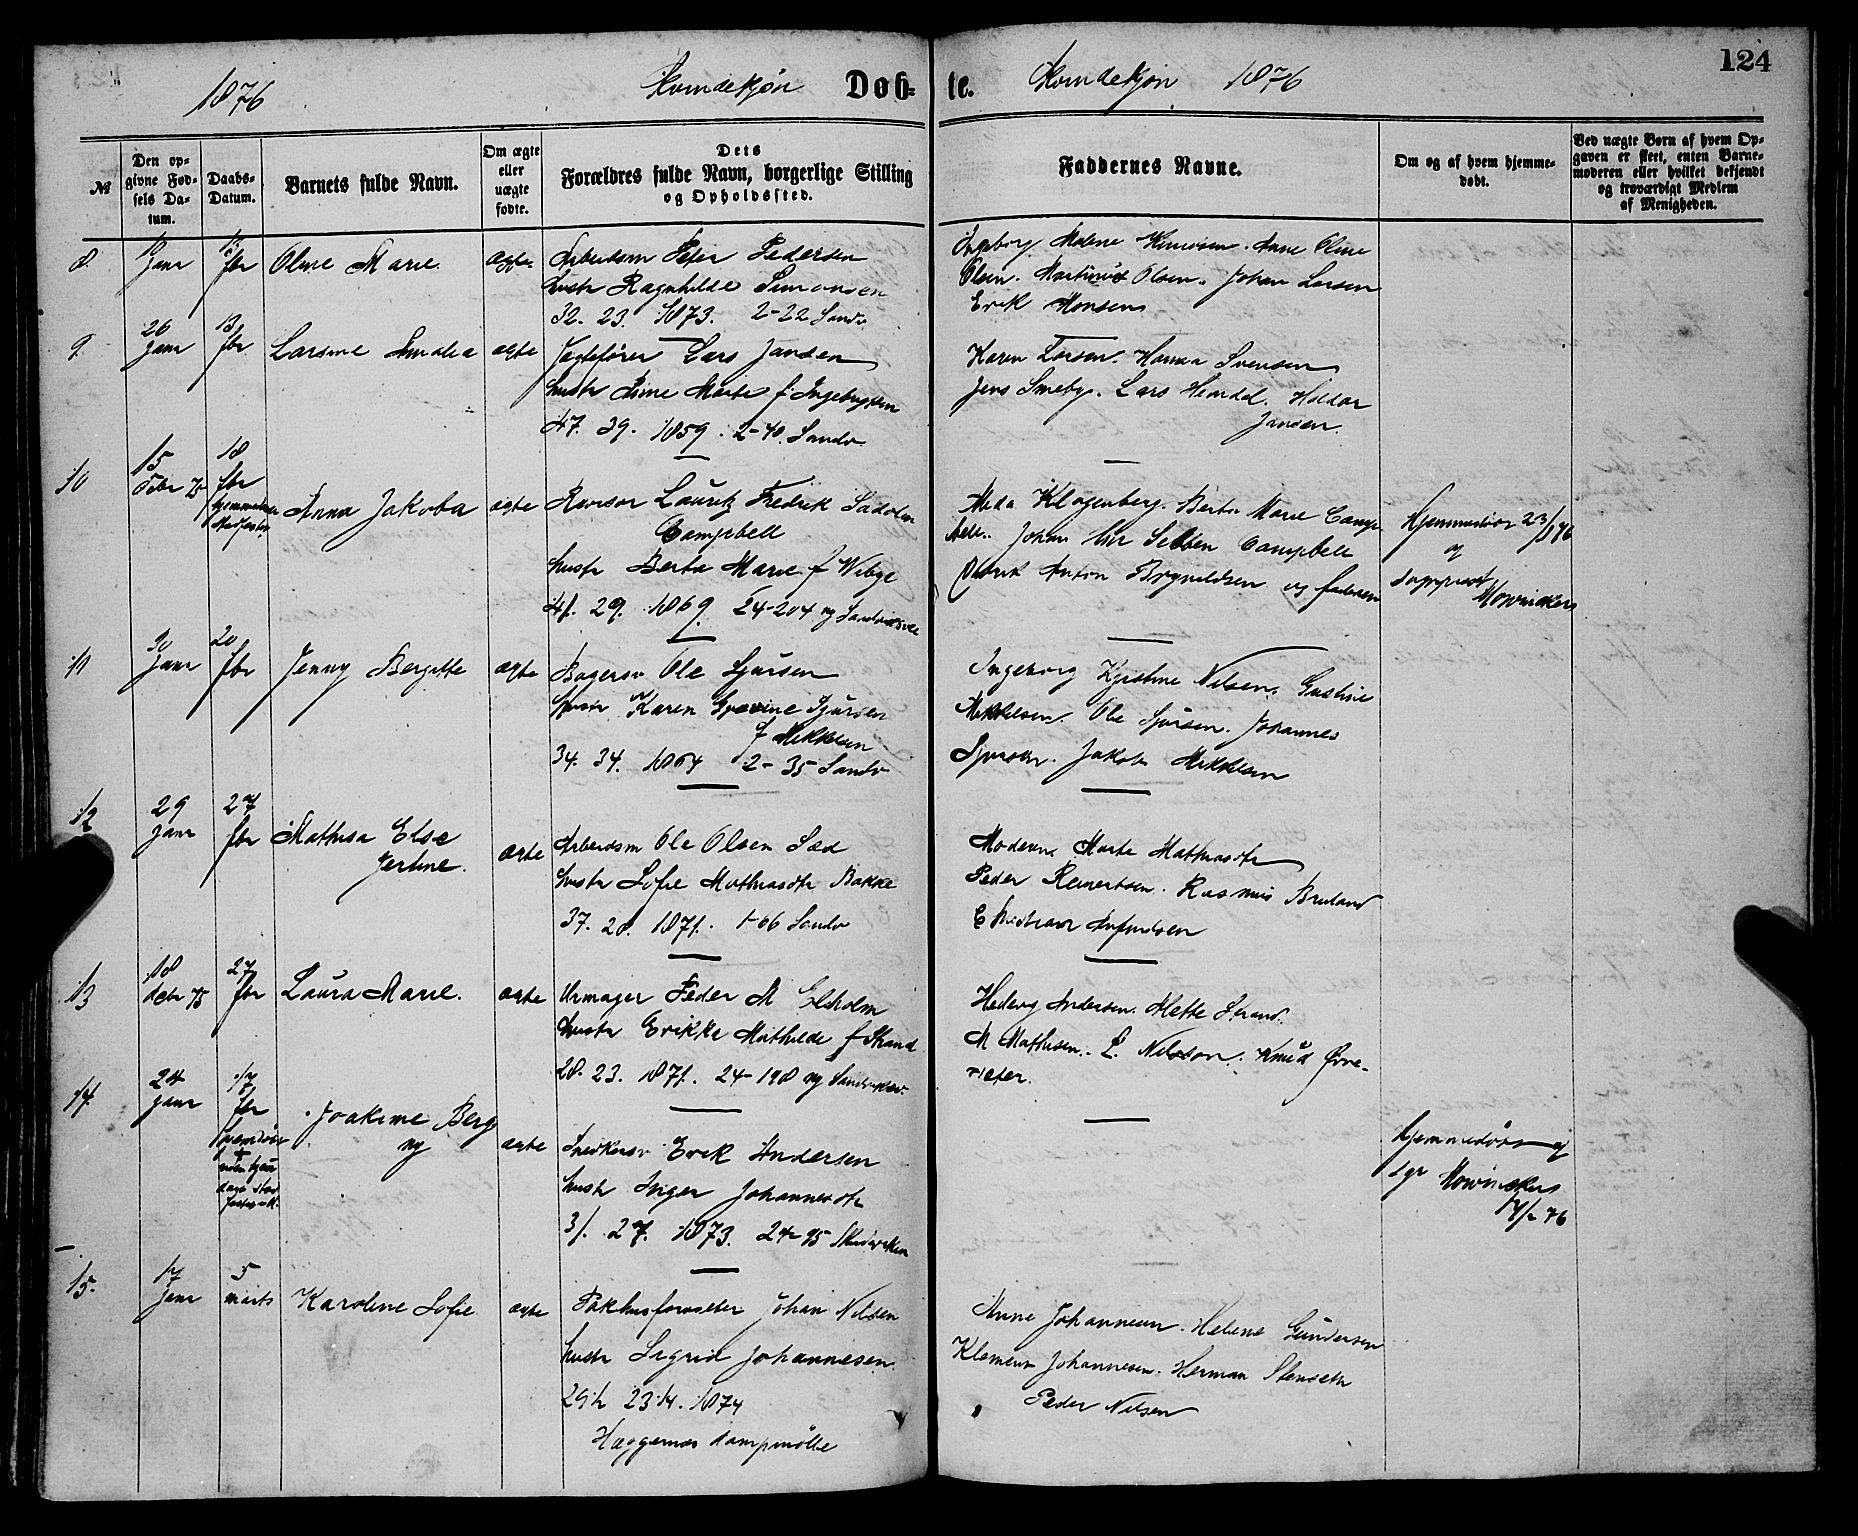 124
1876 Kvindekjøn Døb- te. Kvindekjøn 1876
№
Den op-
givne Fød-
sels Da-
tum.
Daabs-
Datum.
Barnets fulde Navn.
Om ægte
eller
uægte
fødte.
Dets
Forældres fulde Navn, borgerlige Stilling
og Opholdssted.
Faddernes Navne.
Om og af hvem hjemme-
døbt.
Ved uægte Børn af hvem Op-
gaven er skeet, enten Barne-
moderen eller hvilket bekjendt
og troværdigt Medlem
af Menigheden.
8.
Janr
13
fbr
Oline Marie
ægte
Arbeidsm Peter Pedersen
hustr Ragnhilde Simonsen
32. 23. 1873. 2-22 Sandv
Ingeborg Malene Anne Oline
Olsen. Olsen. Johan Larsen
Erik Monsen
9.
26
Janr
13
fbr
Larsine Amalia
ægte
Jægtefører Lars Jansen
hustr Marte f Ingebrigtsen
47. 39. 1859. 2-40. Sandv
Karen Larsen. Hanna Svensen
Jens Smeby. Lars Heindal. Haldor
Jansen.
10
15
Octbr 75
18
fbr
Anna Jakoba
ægte
Revisor Lauritz Fredrik Sadolin
Campbell
hustr Berta Marie f Wibye
41. 29. 1869. 24-204 ny Sandviksvei
Klagenberg. Berta Marie Camp-
bell. Johan Campbell
Anton Brynildsen og faderen
Hjemmedøbt 23/1 76
af
sogneprest
Mowinckel
11
30
Janr
20
fbr
Jenny Bergitte
ægte
Bagersv Ole Sjursen
hustr Karen Sjursen
f Mikkelsen
34. 34. 1864 2-35 Sandv
Ingeborg Kjistine Nilsen. Gustine
Mikkelsen. Ole Sjursen. Johannes
Sjursen. Jakob Mikkelsen
12
29
Janr
27
fbr
Mathisa Else
Jertine.
ægte
Arbeidsm Ole Olsen Sæd
hustr Sofie Mathiasdtr Bakke
37. 28. 1871. 1-66 Sandv
Moderen. Marte Mathiasdtr
Peder Reinertsen. Rasmus Bruland
Christian Anfindsen
13
18
Decbr 75
27
fbr
Laura Marie.
ægte
Urmager Peder M Elsholm
hustr Erikke Mathilde f Strand
28. 23. 1871. 24-198 ny Sandviksv.
Hedvig Andersen. Mette Strand.
M Mathisen. L. Nilsson. Knud Øvre-
sæter.
14.
24
Janr
17
fbr
hjemdøbt
Joakime Berg
ny
ægte
Snedkersv Erik Andersen
hustr Inger Johannesdtr
31. 27. 1873. 24-95 Skudeviken
hjemmedøbt af
sgr Mowinckel
17/2 76
15.
17
Janr
5
marts
Karoline Sofie
ægte
Pakhusformester Johan Nilsen
hustr Sigrid Johannesen
29 1/2 23 1/4. 1874
Hæggernæs Dampmølle
Anne Johannesen. Helene Gundersen
Klement Johannesen. Herman Stenseth
Peder Nilsen